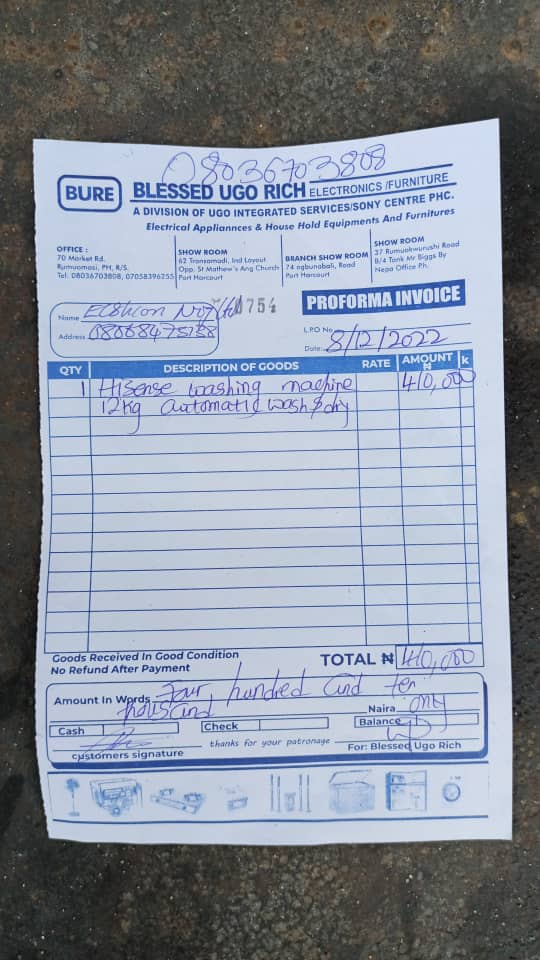 08036703808
BURE
BLESSED UGO RICH ELECTRONICS /FURNITURE
A DIVISION OF UGO INTEGRATED SERVICES/SONY CENTRE PHC.
Electrical Appliannces & House Hold Equipments And Furnitures
OFFICE :
70 Market Rd.
Rumuomasi, PH, R/S.
Tel: 08036703808, 07058396255
SHOW ROOM
62 Transamadi, Ind Layout
Opp. St Mathew's Ang Church
Port Harcourt
BRANCH SHOW ROOM
74 ogbunabali, Road
Port Harcourt
SHOW ROOM
37 Rumuokwurushi Road
B/4 Tank Mr Biggs By
Nepa Office Ph.
Name
Address 08068475188
0754
PROFORMA INVOICE
L.P.O No
Date: 8/12/2022
QTY DESCRIPTION OF GOODS RATE AMOUNT ₦ k
1 Hisense washing machine 410,000
12kg automatic wash & dry
Goods Received In Good Condition
No Refund After Payment
TOTAL ₦ 410,000
Amount In Words Four hundred and ten
thousand Naira only
Cash Check Balance
customers signature
thanks for your patronage
For: Blessed Ugo Rich